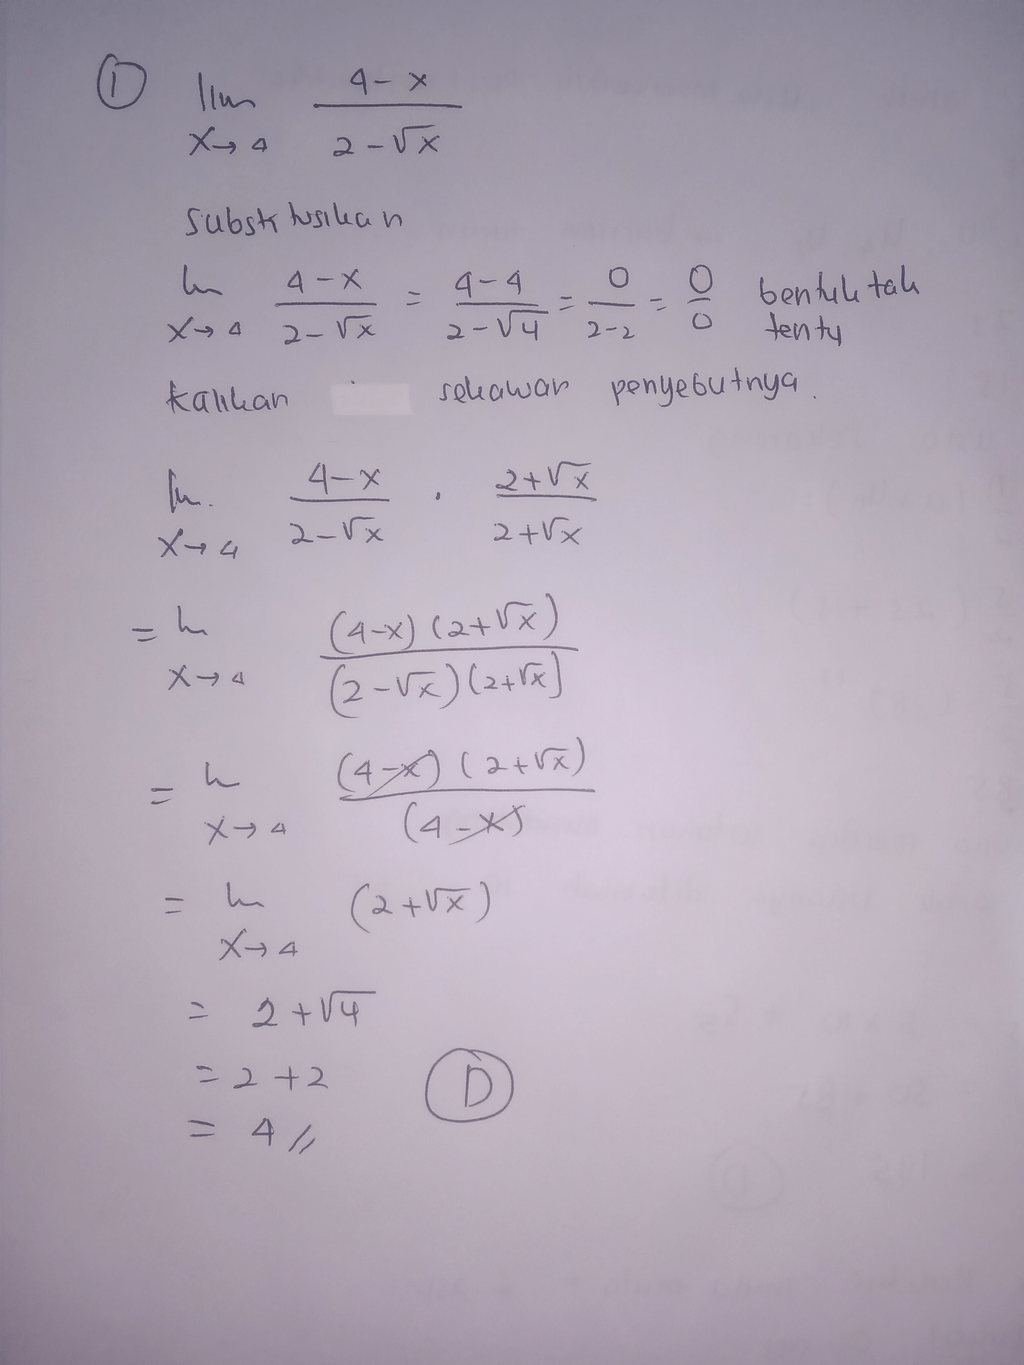 ① lim 4-x / 2-√x
x→4
substitusikan
lim 4-x / 2-√x = 4-4 / 2-√4 = 0 / 2-2 = 0/0 bentuk tak
x→4 tentu
kalikan sekawan penyebutnya.
lim 4-x / 2-√x . 2+√x / 2+√x
x→4
= lim (4-x) (2+√x) / (2-√x) (2+√x)
x→4
= lim (4-x) (2+√x) / (4-x)
x→4
= lim (2+√x)
x→4
= 2+√4
= 2+2 D
= 4 //